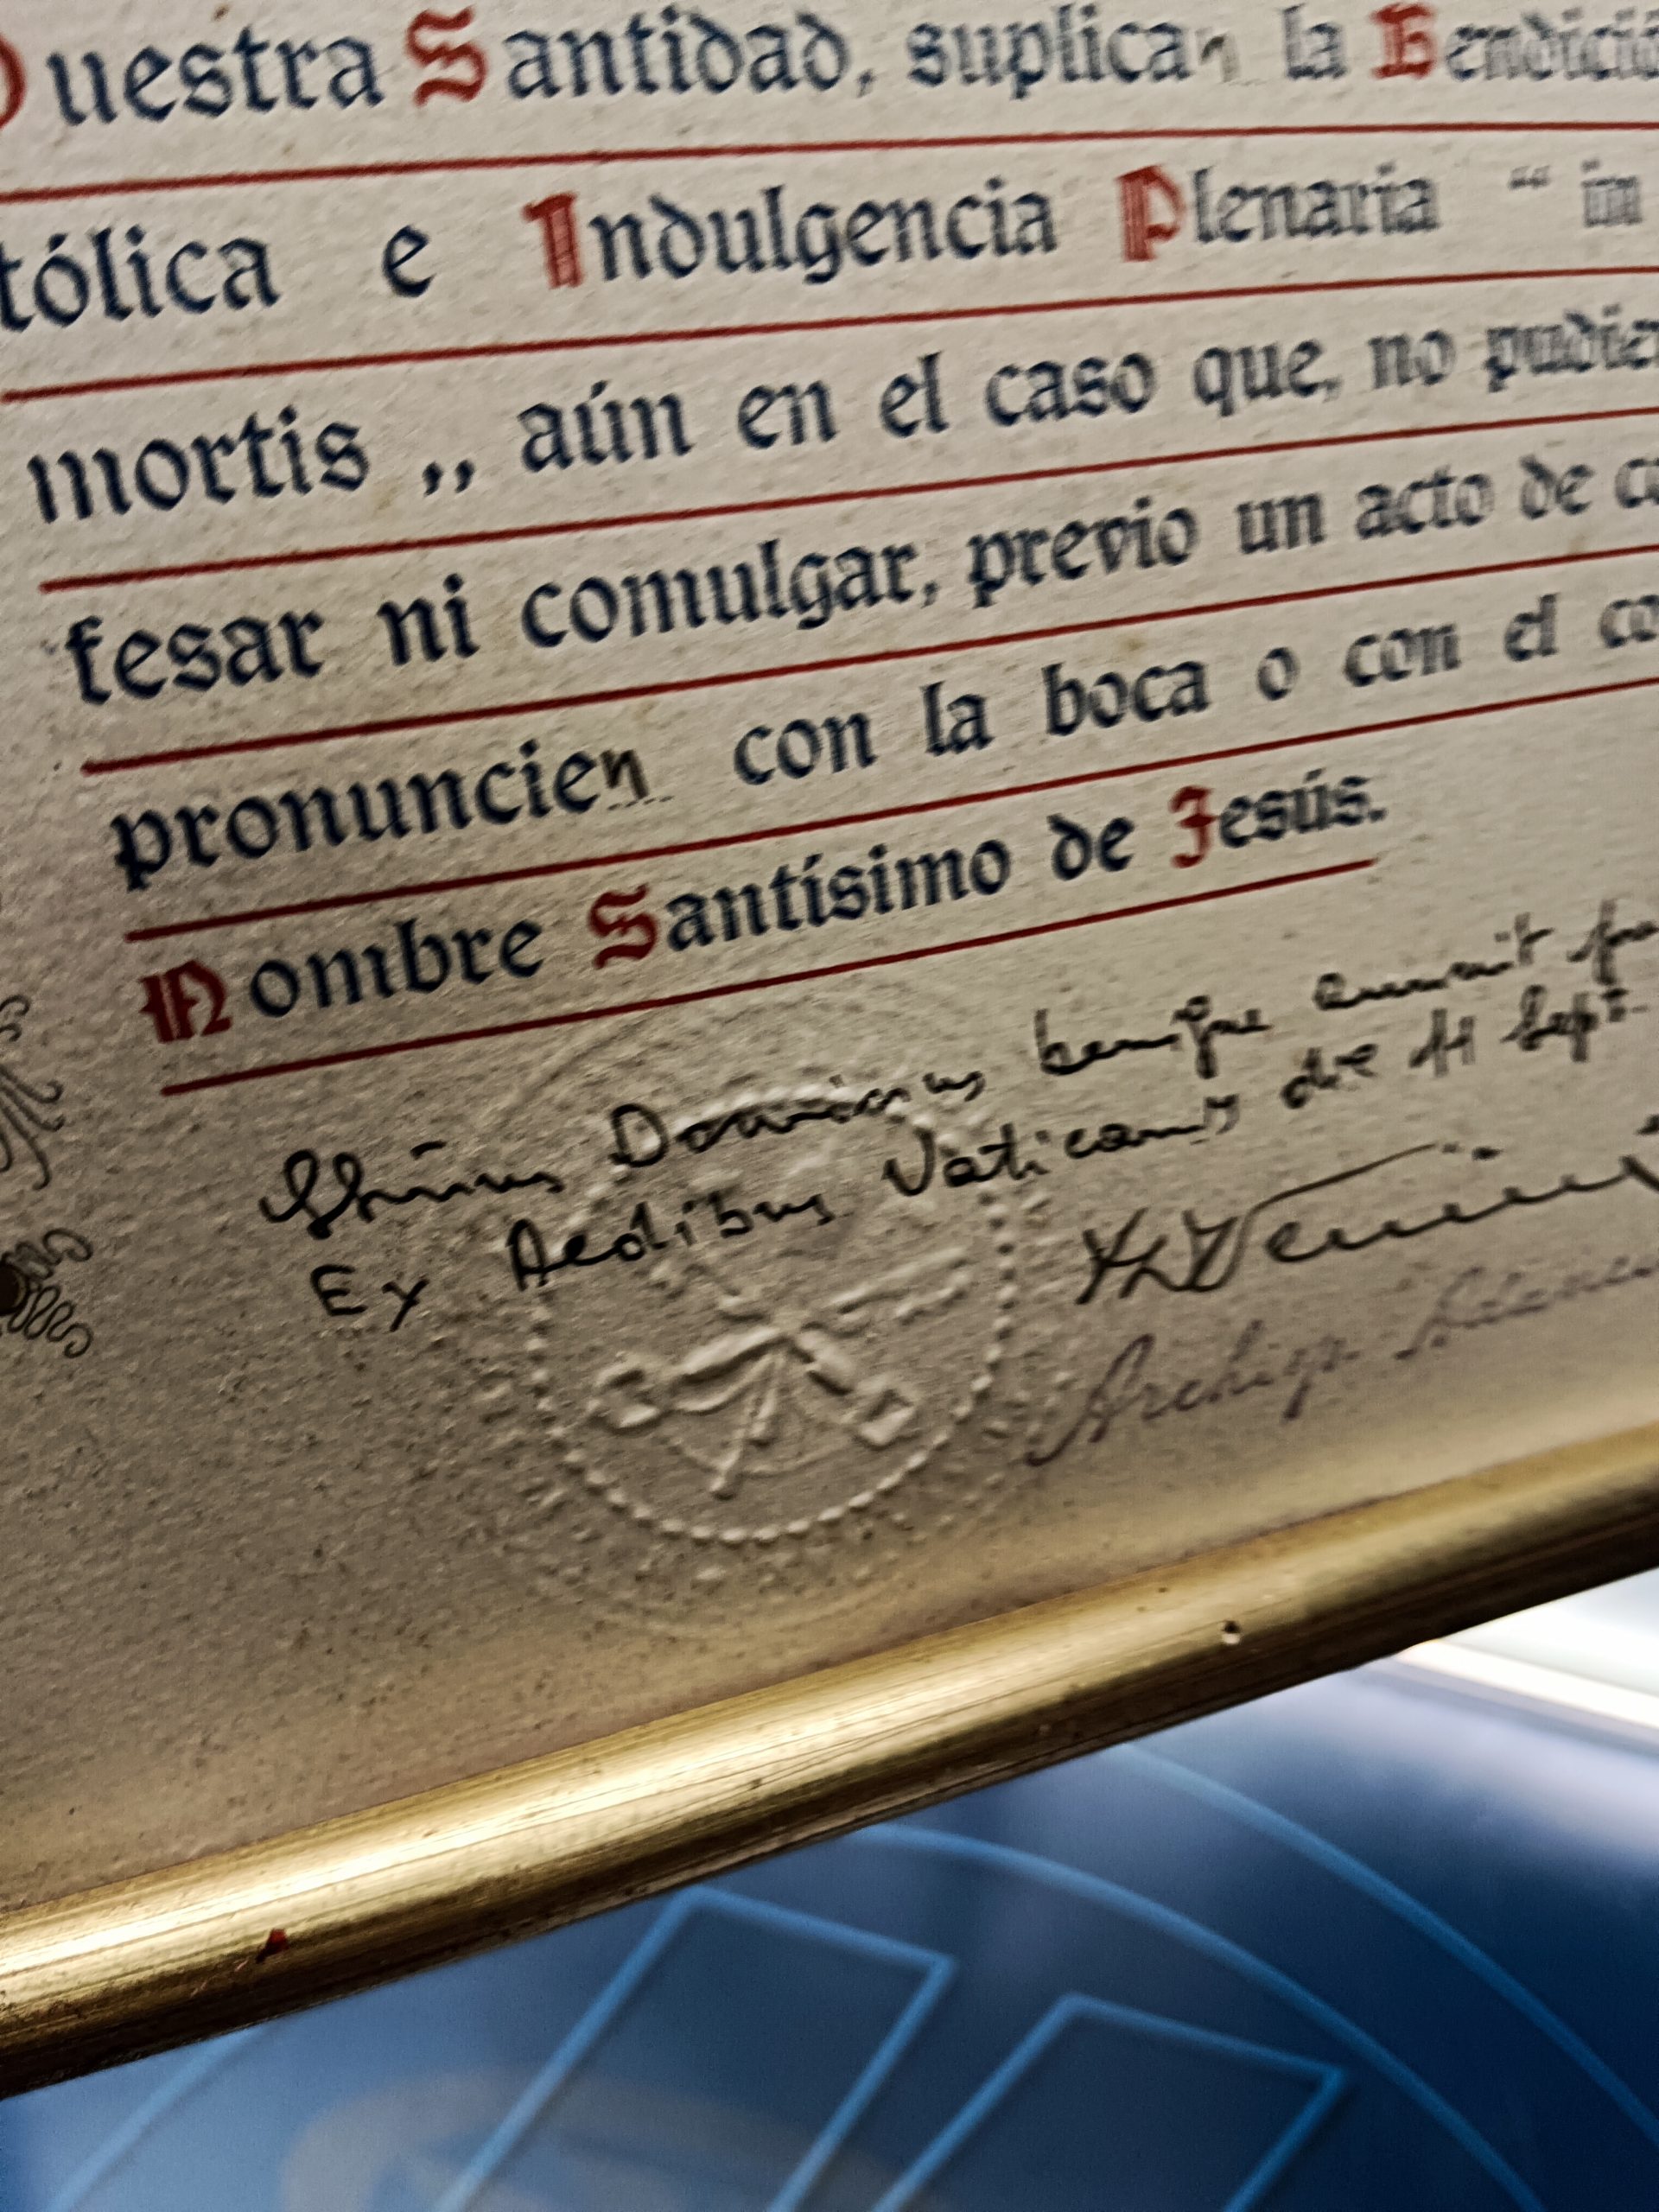 uestra Santidad, suplican la Bendició
tólica e Indulgencia Plenaria “ in
mortis ,, aún en el caso que, no pudie
fesar ni comulgar, previo un acto de c
pronuncien con la boca o con el co
Nombre Santísimo de Jesús.
Dominus benigne annuit
Ex Aedibus Vaticanis die 11 Sept.
Archiep.